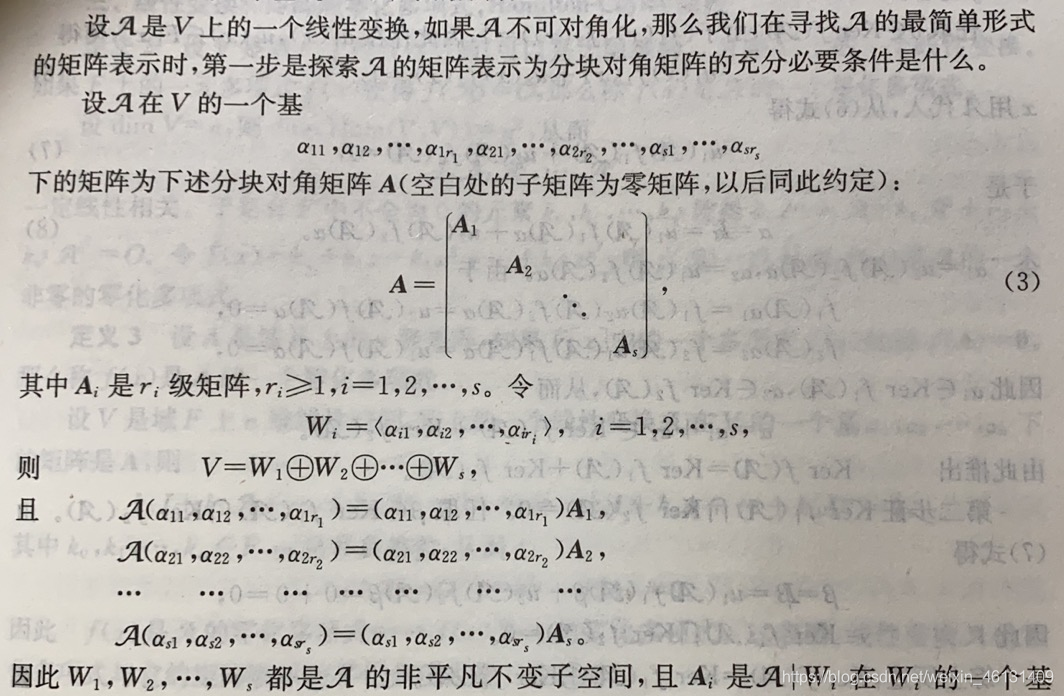 设𝒜是 V 上的一个线性变换,如果𝒜不可对角化,那么我们在寻找𝒜的最简单形式
的矩阵表示时,第一步是探索𝒜的矩阵表示为分块对角矩阵的充分必要条件是什么。
设𝒜在 V 的一个基
α₁₁,α₁₂,⋯,α₁ᵣ₁,α₂₁,⋯,α₂ᵣ₂,⋯,αₛ₁,⋯,αₛᵣₛ
下的矩阵为下述分块对角矩阵 A(空白处的子矩阵为零矩阵,以后同此约定):
A₁
A₂
A= ⋱ , (3)
Aₛ
其中 Aᵢ 是 rᵢ 级矩阵,rᵢ≥1,i=1,2,⋯,s。令
Wᵢ=⟨αᵢ₁,αᵢ₂,⋯,αᵢᵣᵢ⟩, i=1,2,⋯,s,
则 V=W₁⊕W₂⊕⋯⊕Wₛ,
且 𝒜(α₁₁,α₁₂,⋯,α₁ᵣ₁)=(α₁₁,α₁₂,⋯,α₁ᵣ₁)A₁,
𝒜(α₂₁,α₂₂,⋯,α₂ᵣ₂)=(α₂₁,α₂₂,⋯,α₂ᵣ₂)A₂,
⋯ ⋯ ⋯ ⋯ ⋯ ⋯ ⋯ ⋯
𝒜(αₛ₁,αₛ₂,⋯,αₛᵣₛ)=(αₛ₁,αₛ₂,⋯,αₛᵣₛ)Aₛ。
因此 W₁,W₂,⋯,Wₛ 都是𝒜 的非平凡不变子空间,且 Aᵢ 是𝒜|Wᵢ 在 Wᵢ 的一个基
https://blog.csdn.net/weixin_46131409